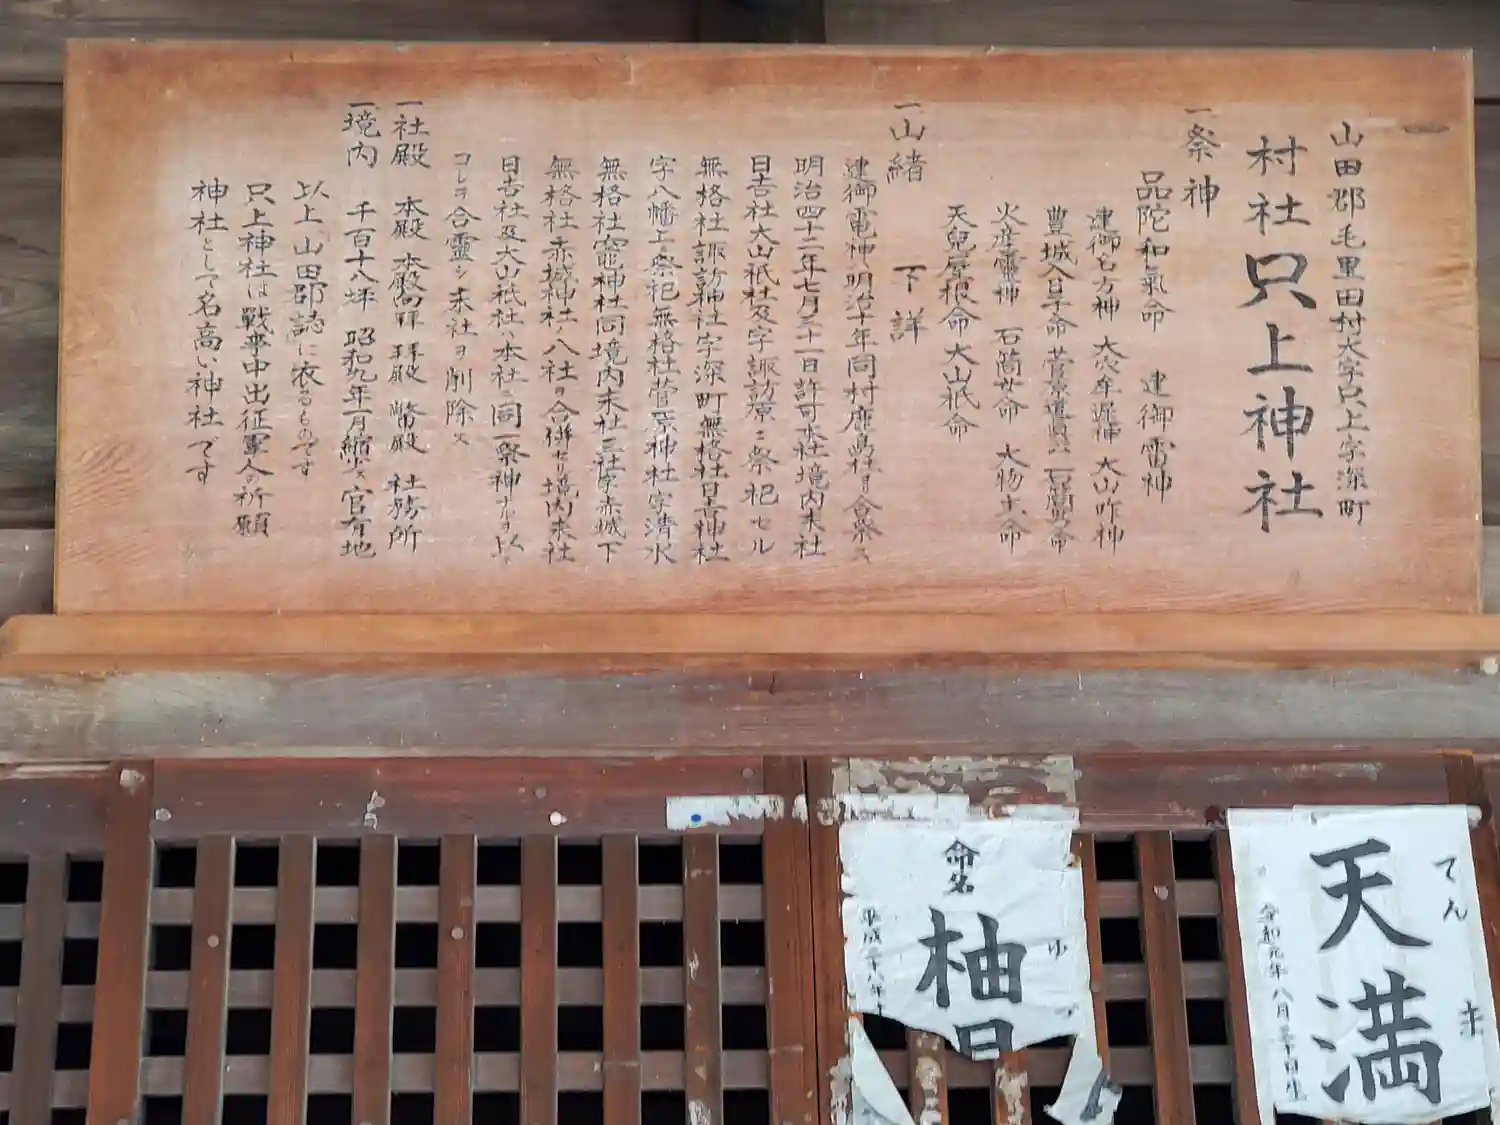 山田郡毛里田村大字只上字深町
村社只上神社
一祭神
品陀和氣命 建御雷神
建御名方神 大穴牟遅神 大山咋神
豊城入日子命 菅原道真公 石筒男命
火産靈神 石筒女命 大物主命
天兒屋根命 大山祇命
一山緒 下詳
建御雷神ハ明治十年同村鹿島社ヲ合祭ス
明治四十二年七月三十一日許可本社境内末社
日吉社大山祇社及字諏訪原ニ祭祀セル
無格社諏訪神社字深町無格社日吉神社
字八幡上ニ祭祀無格社菅原神社字清水
無格社竈神社同境内末社三社字赤城下
無格社赤城神社ノ八社ヲ合併セリ境内末社
日吉社及大山祇社ハ本社ニ同一祭神ナルヲ以テ
コレヲ合靈シ末社ヲ削除ス
一社殿 本殿 本殿向拝 拝殿 幣殿 社務所
一境内 千百十八坪 昭和九年一月縮少ス 官有地
以上「山田郡誌」に依るものです
只上神社は戰事中出征軍人の祈願
神社として名高い神社です
命名
柚
ゆ
づ
平成二十八年
てん
ま
天満
令和元年八月三十日生